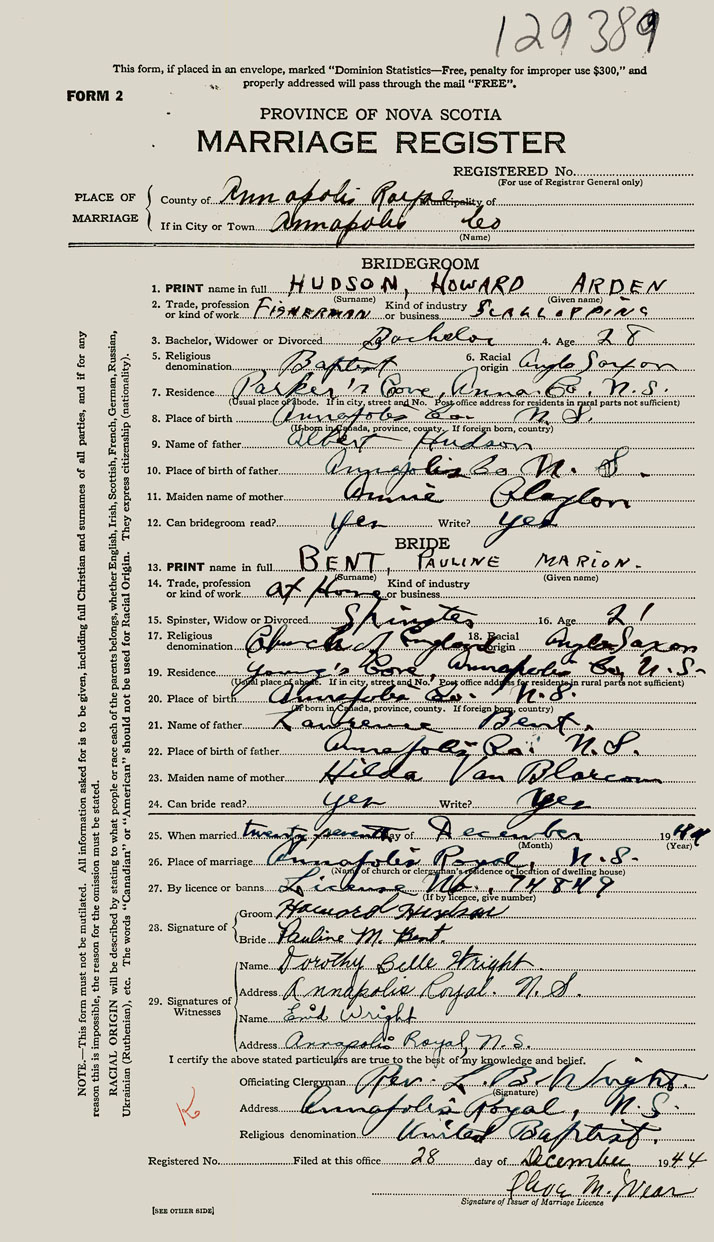 129389
This form, if placed in an envelope, marked "Dominion Statistics—Free, penalty for improper use $300," and
properly addressed will pass through the mail "FREE".
FORM 2
PROVINCE OF NOVA SCOTIA
MARRIAGE REGISTER
REGISTERED No.
(For use of Registrar General only)
PLACE OF MARRIAGE
County of Annapolis Royal Municipality of
If in City or Town Annapolis Co
(Name)
BRIDEGROOM
1. PRINT name in full HUDSON, HOWARD ARDEN
(Surname) (Given name)
2. Trade, profession or kind of work FISHERMAN Kind of industry or business SCALLOPPING
3. Bachelor, Widower or Divorced Bachelor 4. Age 28
5. Religious denomination Baptist 6. Racial origin Anglo Saxon
7. Residence Parker's Cove, Anna. Co, N.S.
(Usual place of abode. If in city, street and No. Post office address for residents in rural parts not sufficient)
8. Place of birth Annapolis Co. N.S.
(If born in Canada, province, county. If foreign born, country)
9. Name of father Albert Hudson
10. Place of birth of father Annapolis Co N. S.
11. Maiden name of mother Annie Clayton
12. Can bridegroom read? Yes Write? Yes
BRIDE
13. PRINT name in full BENT, PAULINE MARION.
(Surname) (Given name)
14. Trade, profession or kind of work at Home Kind of industry or business
15. Spinster, Widow or Divorced Spinster 16. Age 21
17. Religious denomination Church of England 18. Racial origin Anglo Saxon
19. Residence Young's Cove, Annapolis Co, N.S.
(Usual place of abode. If in city, street and No. Post office address for residents in rural parts not sufficient)
20. Place of birth Annapolis Co. N.S.
(If born in Canada, province, county. If foreign born, country)
21. Name of father Lawrence Bent.
22. Place of birth of father Annapolis Co. N.S.
23. Maiden name of mother Hilda Van Blarcom
24. Can bride read? yes Write? Yes
25. When married twenty seventh day of December 1944
(Month) (Year)
26. Place of marriage Annapolis Royal, N.S.
(Name of church or clergyman's residence or location of dwelling house)
27. By licence or banns License No. 74849
(If by licence, give number)
28. Signature of
Groom Howard Hudson
Bride Pauline M. Bent.
29. Signatures of Witnesses
Name Dorothy Belle Wright.
Address Annapolis Royal. N.S.
Name Enid Wright
Address Annapolis Royal, N.S.
I certify the above stated particulars are true to the best of my knowledge and belief.
Officiating Clergyman Rev. L. B. Wright.
(Signature)
Address Annapolis Royal, N.S.
Religious denomination United Baptist.
Registered No. Filed at this office 28 day of December 1944
Signature of Issuer of Marriage Licence
[SEE OTHER SIDE]
NOTE.—This form must not be mutilated. All information asked for is to be given, including full Christian and surnames of all parties, and if for any
reason this is impossible, the reason for the omission must be stated.
RACIAL ORIGIN will be described by stating to what people or race each of the parents belongs, whether English, Irish, Scottish, French, German, Russian,
Ukrainian (Ruthenian), etc. The words "Canadian" or "American" should not be used for Racial Origin. They express citizenship (nationality).